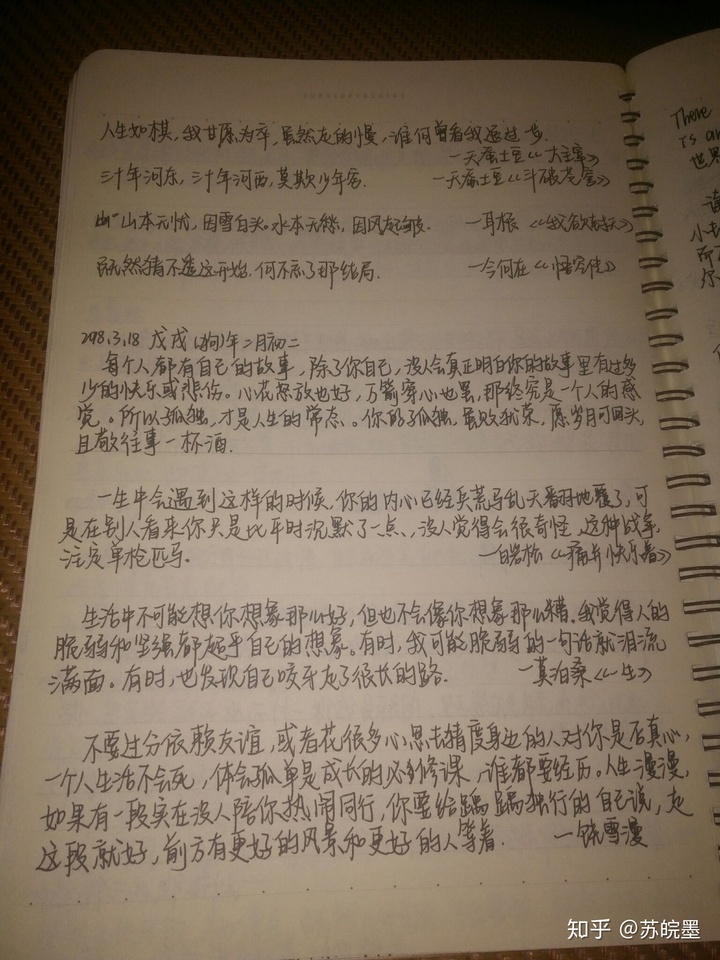 人生如棋,我甘愿为卒,虽然走的慢,谁何曾看我退过步.
—天蚕土豆《大主宰》
三十年河东,三十年河西,莫欺少年穷. —天蚕土豆《斗破苍穹》
山本无忧,因雪白头。水本无愁,因风起皱. —耳根《我欲封天》
既然猜不透这开始.何不忘了那结局. —今何在《悟空传》
.3.18 戊戌(狗)年二月初二
每个人都有自己的故事,除了你自己,没人会真正明白你的故事里有过多
少的快乐或悲伤。心花怒放也好,万箭穿心也罢,那终究是一个人的感
觉。所以孤独,才是人生的常态.。你的孤独,虽败犹荣,愿岁月可回头,
且敬往事一杯酒.
一生中会遇到这样的时候,你的内心已经兵荒马乱天翻地覆了,可
是在别人看来你只是比平时沉默了一点,没人觉得会很奇怪.这种战争,
注定单枪匹马. —白岩松《痛并快乐着》
生活中不可能想你想象那么好,但也不会像你想象那么糟.我觉得人的
脆弱和坚强都超乎自己的想象。有时,我可能脆弱的一句话就泪流
满面。有时,也发现自己咬牙走了很长的路. —莫泊桑《一生》
不要过分依赖友谊,或者花很多心思去猜度身边的人对你是否真心,
一个人生活不会死,体会孤单是成长的必修课,谁都要经历。人生漫漫,
如果有一段实在没人陪你热闹同行,你要给踽踽独行的自己说,走
这段就好,前方有更好的风景和更好的人等着. —饶雪漫
There
is an
世界
小
所
你
知乎 @苏皖墨